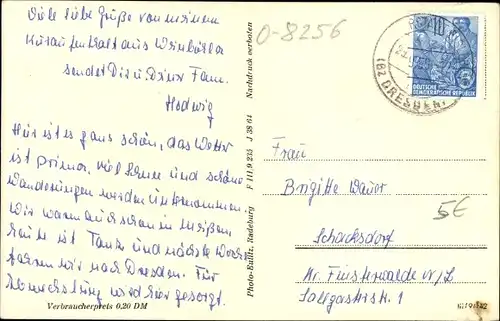 Viele liebe Grüße von meinem
Kuraufenthalt aus Weinböhla
sendet Dir u. Deiner Fam.
Hedwig
Hier ist es ganz schön, das Wetter
ist prima, viel Sonne und schöne
Wanderungen werden unternommen.
Wir waren auch schon in Meißen
heute ist Tanz und nächste Woche
fahren wir nach Dresden. Für
Abwechslung wird hier gesorgt.
Verbraucherpreis 0,20 DM
Photo-Edlitz, Radeburg F III.9 235 J 38 64 Nachdruck verboten
0-8256
(BZ DRESDEN)
10
DEUTSCHE
DEMOKRATISCHE REPUBLIK
Frau
Brigitte
Schacksdorf
Kr. Finsterwalde N/L
5€